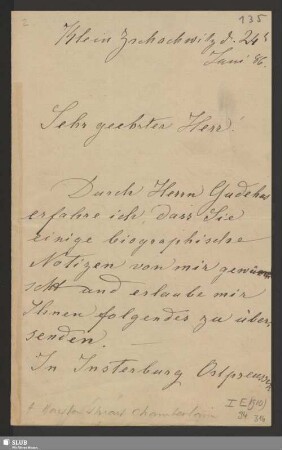 135
Klein Zschachwitz d. 24t
Juni 86.
Sehr geehrter Herr!
Durch Herrn Gudehus
erfahre ich, dass Sie
einige biographische
Notizen von mir gewün-
scht und erlaube mir
Ihnen folgendes zu über-
senden.
In Insterburg Ostpreussen
Houston Stewart Chamberlain
SLUB